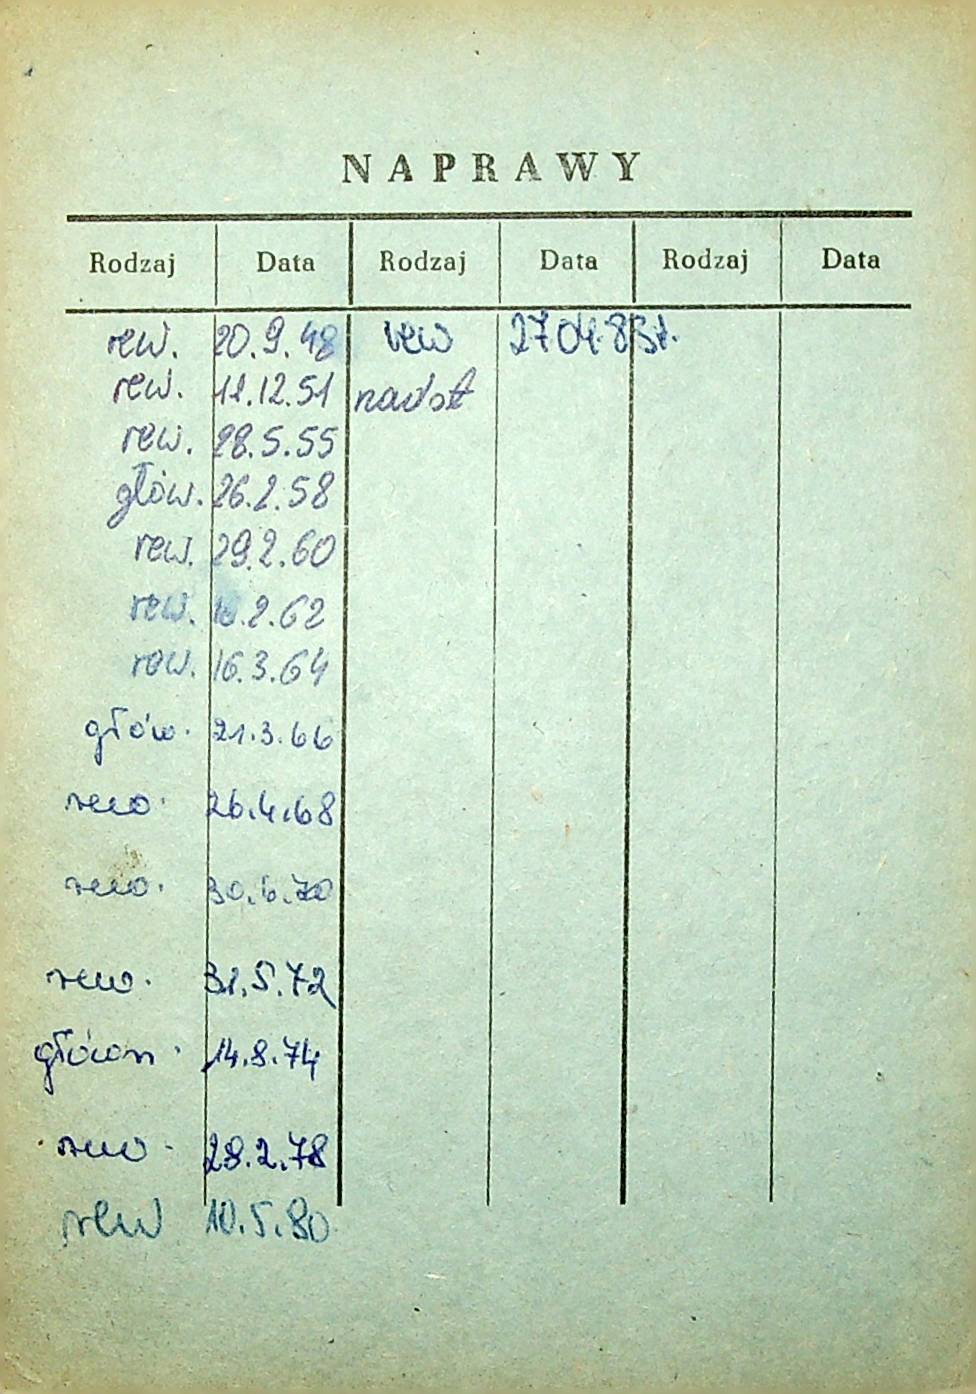 NAPRAWY
Rodzaj Data Rodzaj Data Rodzaj Data
rew. 20.9.48 rew 27.04.83r.
rew. 11.12.51
rew. 28.5.55
głów. 26.2.58
rew. 29.2.60
rew. .2.62
rew. 16.3.64
głów. 21.3.66
rew. 26.4.68
rew. 30.6.70
rew. 31.5.72
główn. 14.8.74
rew. 28.2.78
rew 10.5.80